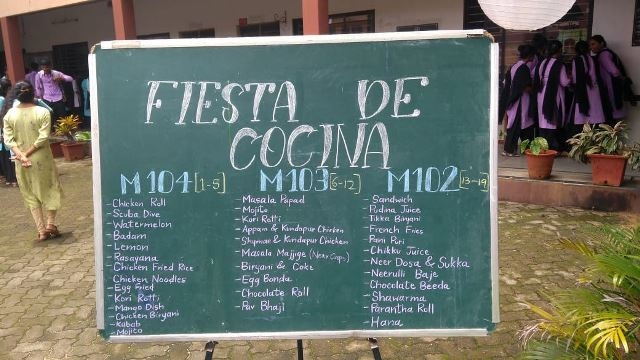 FIESTA DE
COCINA
M104 [1-5]
- Chicken Roll
- Scuba Dive
- Watermelon
- Badam
- Lemon
- Rasayana
- Chicken Fried Rice
- Chicken Noodles
- Egg Fried
- Kori Rotti
- Mango Dish
- Chicken Biryani
- Kabab
- Mojito
M103 [6-12]
- Masala Papad
- Mojito
- Kori Rotti
- Appam & Kundapur Chicken
- Shyavae & Kundapur Chicken
- Masala Majjige
- Biryani & Coke
- Egg Bonda
- Chocolate Roll
- Pav Bhaji
M102 [13-19]
- Sandwich
- Pudina Juice
- Tikka Biryani
- French Fries
- Pani Puri
- Chikku Juice
- Neer Dosa & Sukka
- Neerulli Baje
- Chocolate Beeda
- Shawarma
- Parantha Roll
- Hana